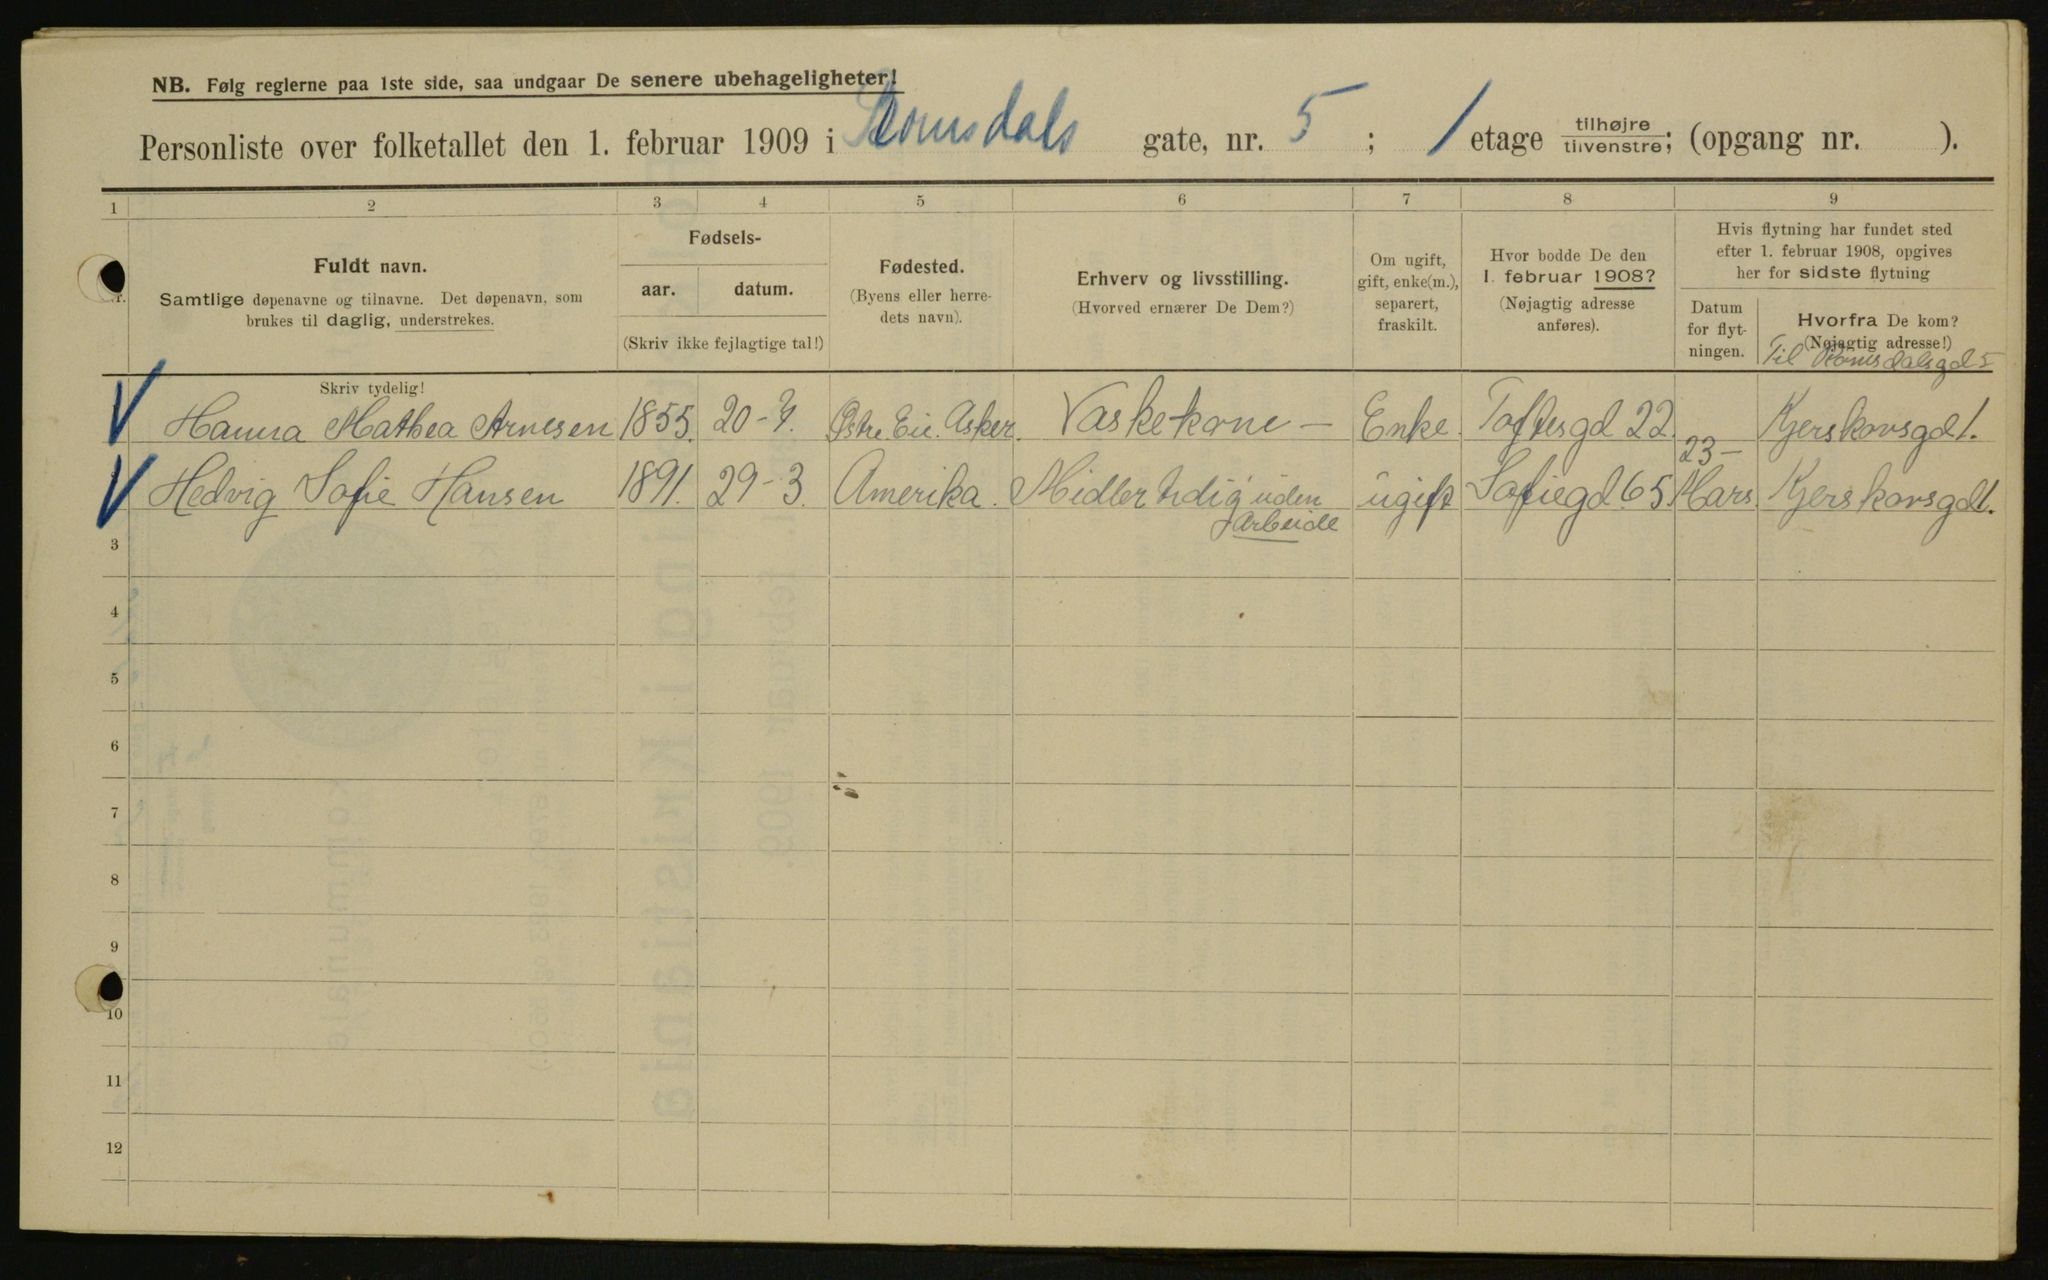 NB. Følg reglerne paa 1ste side, saa undgaar De senere ubehageligheter!
Personliste over folketallet den 1. februar 1909 i Romsdals gate, nr. 5; 1 etage tilhøjre tilvenstre; (opgang nr. ).
1 2 3 4 5 6 7 8 9
Fuldt navn.
Samtlige døpenavne og tilnavne. Det døpenavn, som
brukes til daglig, understrekes.
Fødsels-
aar. datum.
(Skriv ikke fejlagtige tal!)
Fødested.
(Byens eller herre-
dets navn).
Erhverv og livsstilling.
(Hvorved ernærer De Dem?)
Om ugift,
gift, enke(m.),
separert,
fraskilt.
Hvor bodde De den
1. februar 1908?
(Nøjagtig adresse
anføres).
Hvis flytning har fundet sted
efter 1. februar 1908, opgives
her for sidste flytning
Datum
for flyt-
ningen.
Hvorfra De kom?
(Nøjagtig adresse!)
Til Romsdalsgd 5
Skriv tydelig!
Hanna Mathea Arnesen 1855. 20-7. Østre Eie. Asker. Vaskekone – Enke. Toftesgd 22. Kjerskovsgd 1.
Hedvig Sofie Hansen 1891. 29-3. Amerika. Midlertidig uden arbeide ugift Sofiegd. 65. 23– Mars. Kjerskovsgd 1.
3
4
5
6
7
8
9
10
11
12